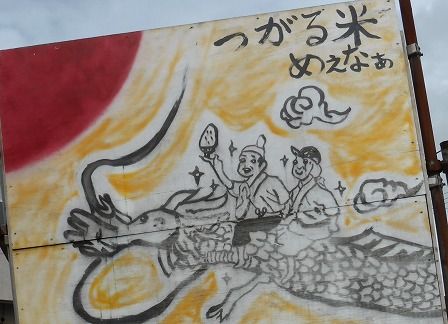 つがる米
めぇなぁ